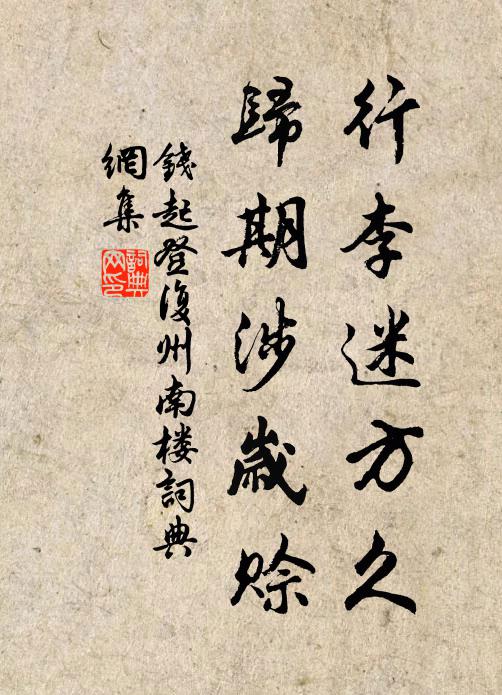 行李迷方久
歸期涉歲賒
錢起登復州南樓詞典
網集
詞典網印